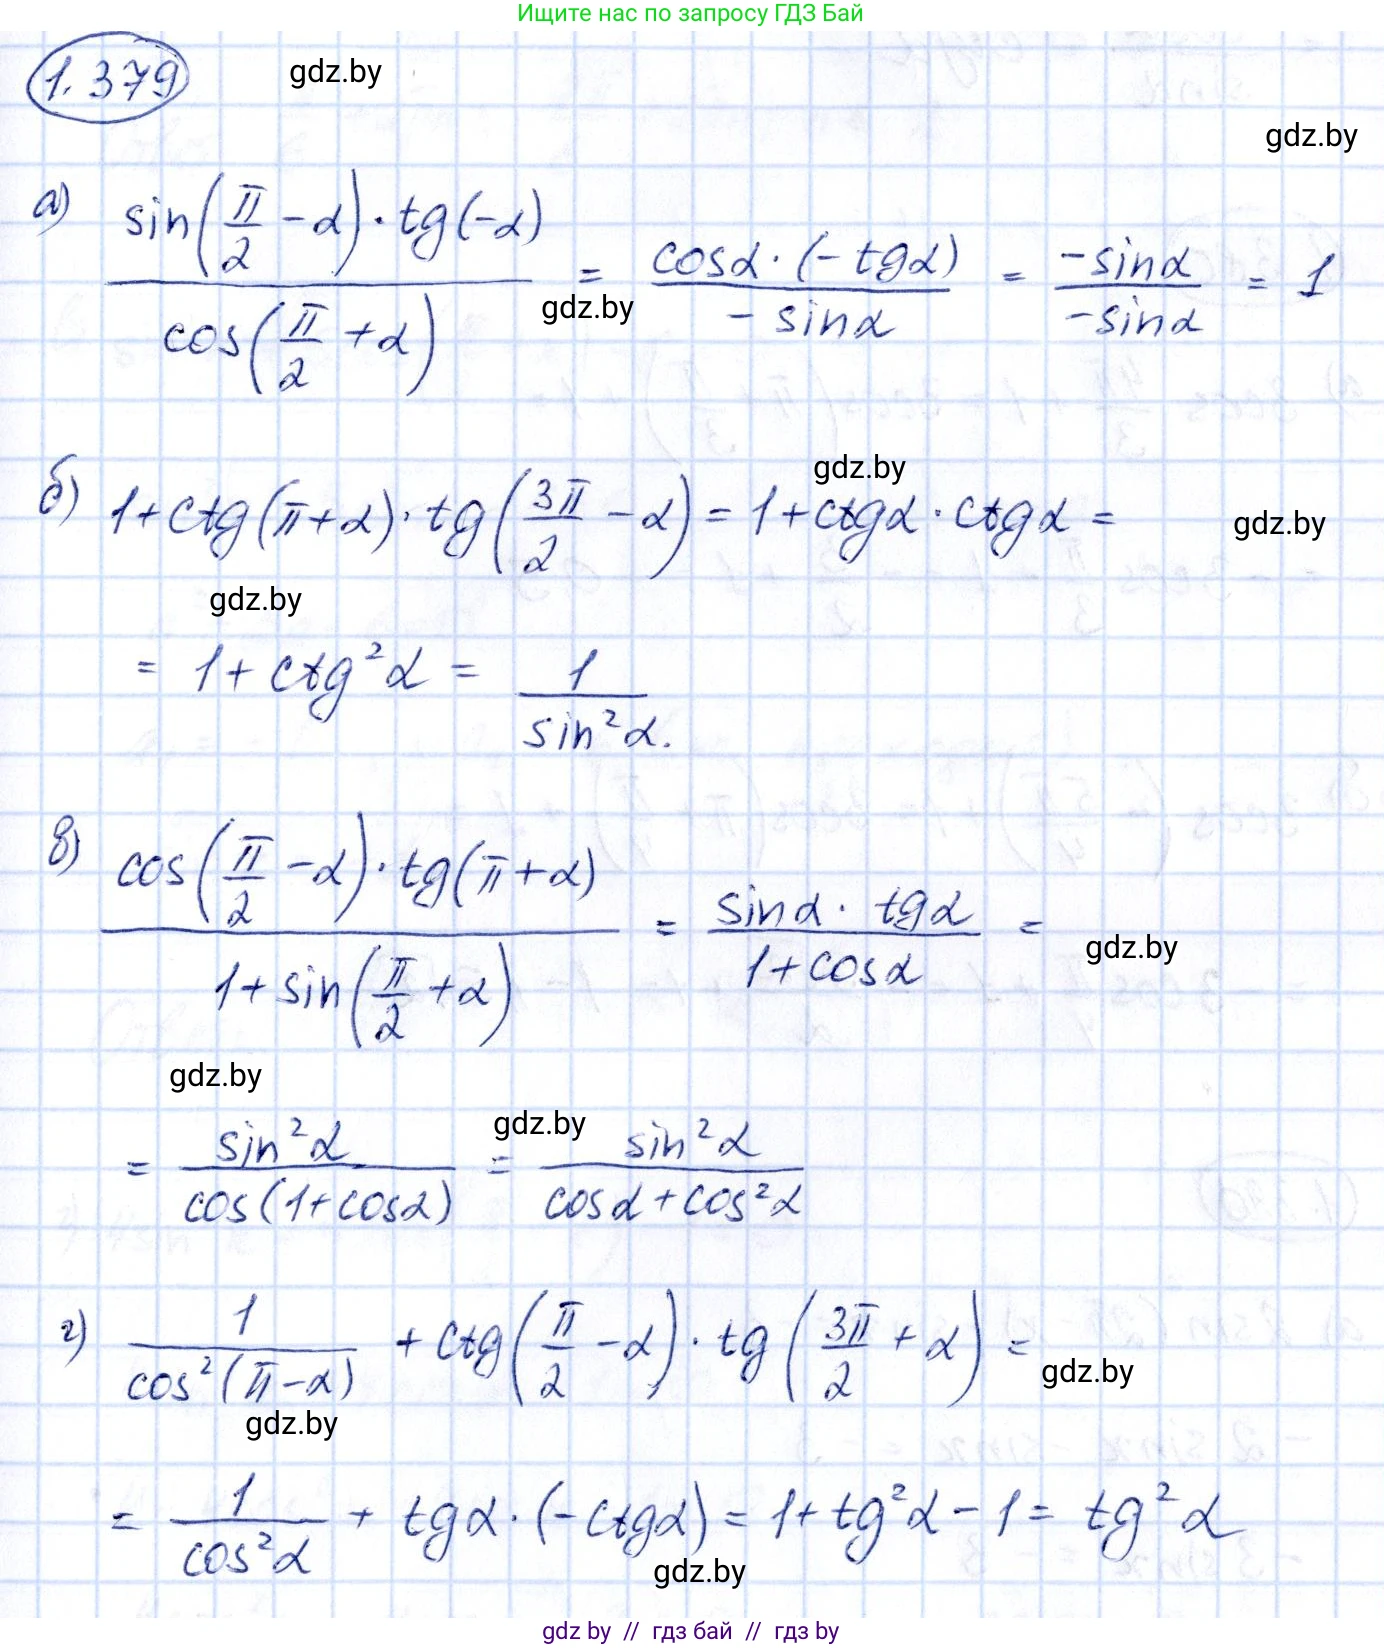 Ищите нас по запросу ГДЗ Бай
1.379 gdz.by
gdz.by
а) (sin(π/2 − α) · tg(−α)) / (cos(π/2 + α)) = (cosα · (−tgα)) / (−sinα) = (−sinα) / (−sinα) = 1
gdz.by
gdz.by
б) 1+ctg(π+α) · tg(3π/2 − α) = 1+ctgα · ctgα =
gdz.by
gdz.by
= 1+ctg²α = 1 / sin²α.
в) (cos(π/2 − α) · tg(π+α)) / (1+sin(π/2 + α)) = (sinα · tgα) / (1+cosα) =
gdz.by
gdz.by
gdz.by
= sin²α / (cos(1+cosα)) = sin²α / (cosα+cos²α)
г) 1 / (cos²(π−α)) + ctg(π/2 − α) · tg(3π/2 + α) =
gdz.by
gdz.by
= 1 / cos²α + tgα · (−ctgα) = 1+tg²α − 1 = tg²α
gdz.by
gdz by // гдз бай // гдз by